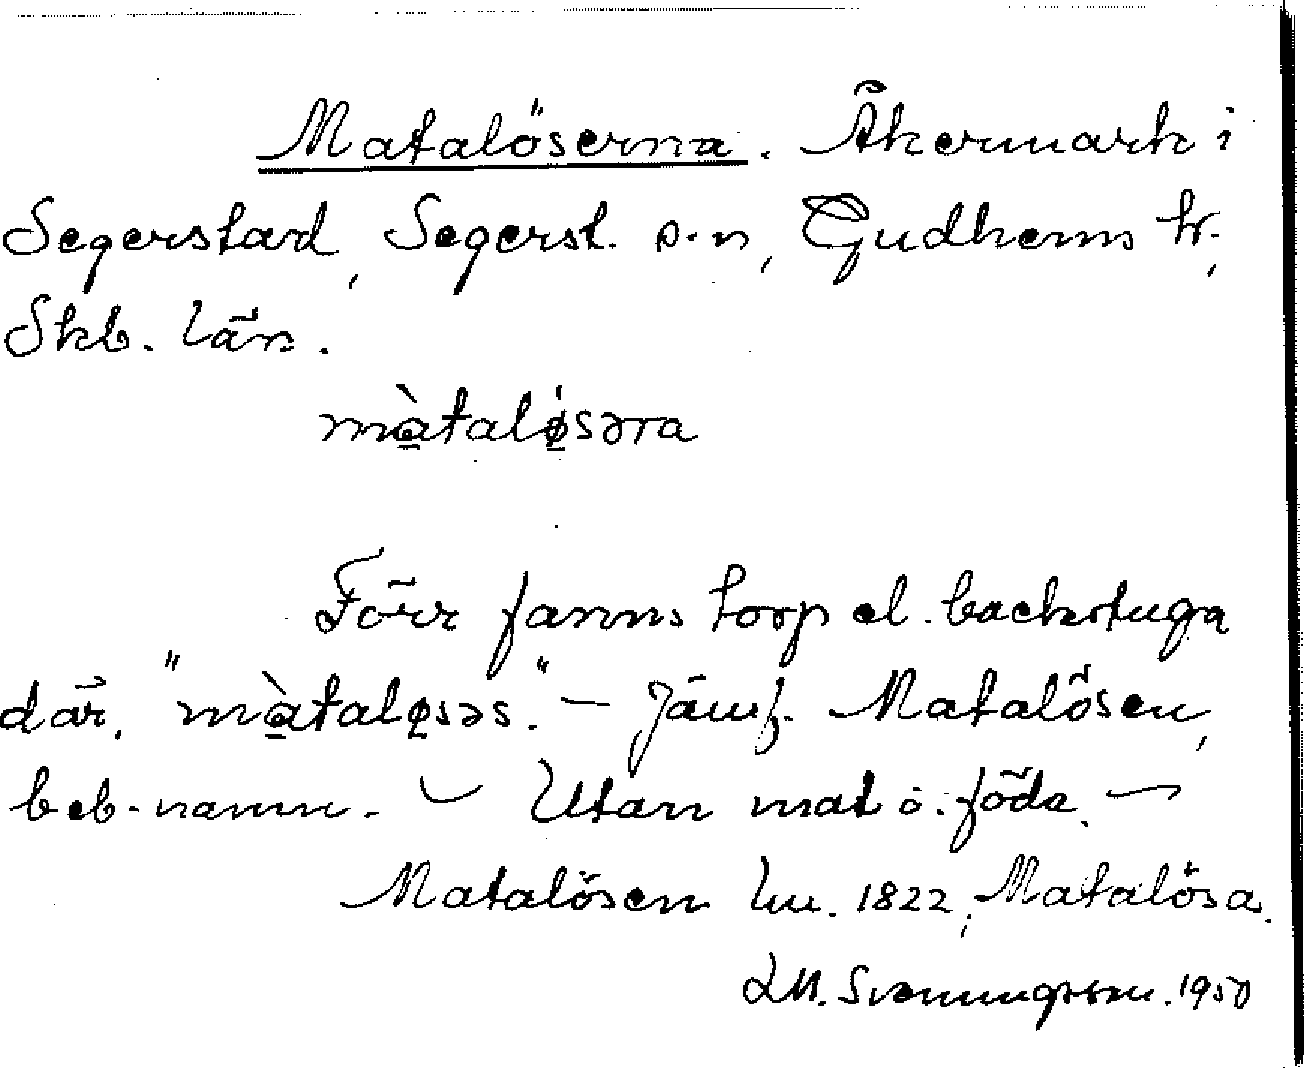 Matalöserna. Åkermark i
Segerstad, Segerst. s-n, Gudhems hr.,
Skb. län.
màtalǿsəra
Förr fanns torp el. backstuga
där, "màtaløsəs." — Jämf. Matalösen,
beb-namn. — Utan mat o. föda. —
Matalösen lm. 1822; Matalösa.
LM. Svenungsson. 1950